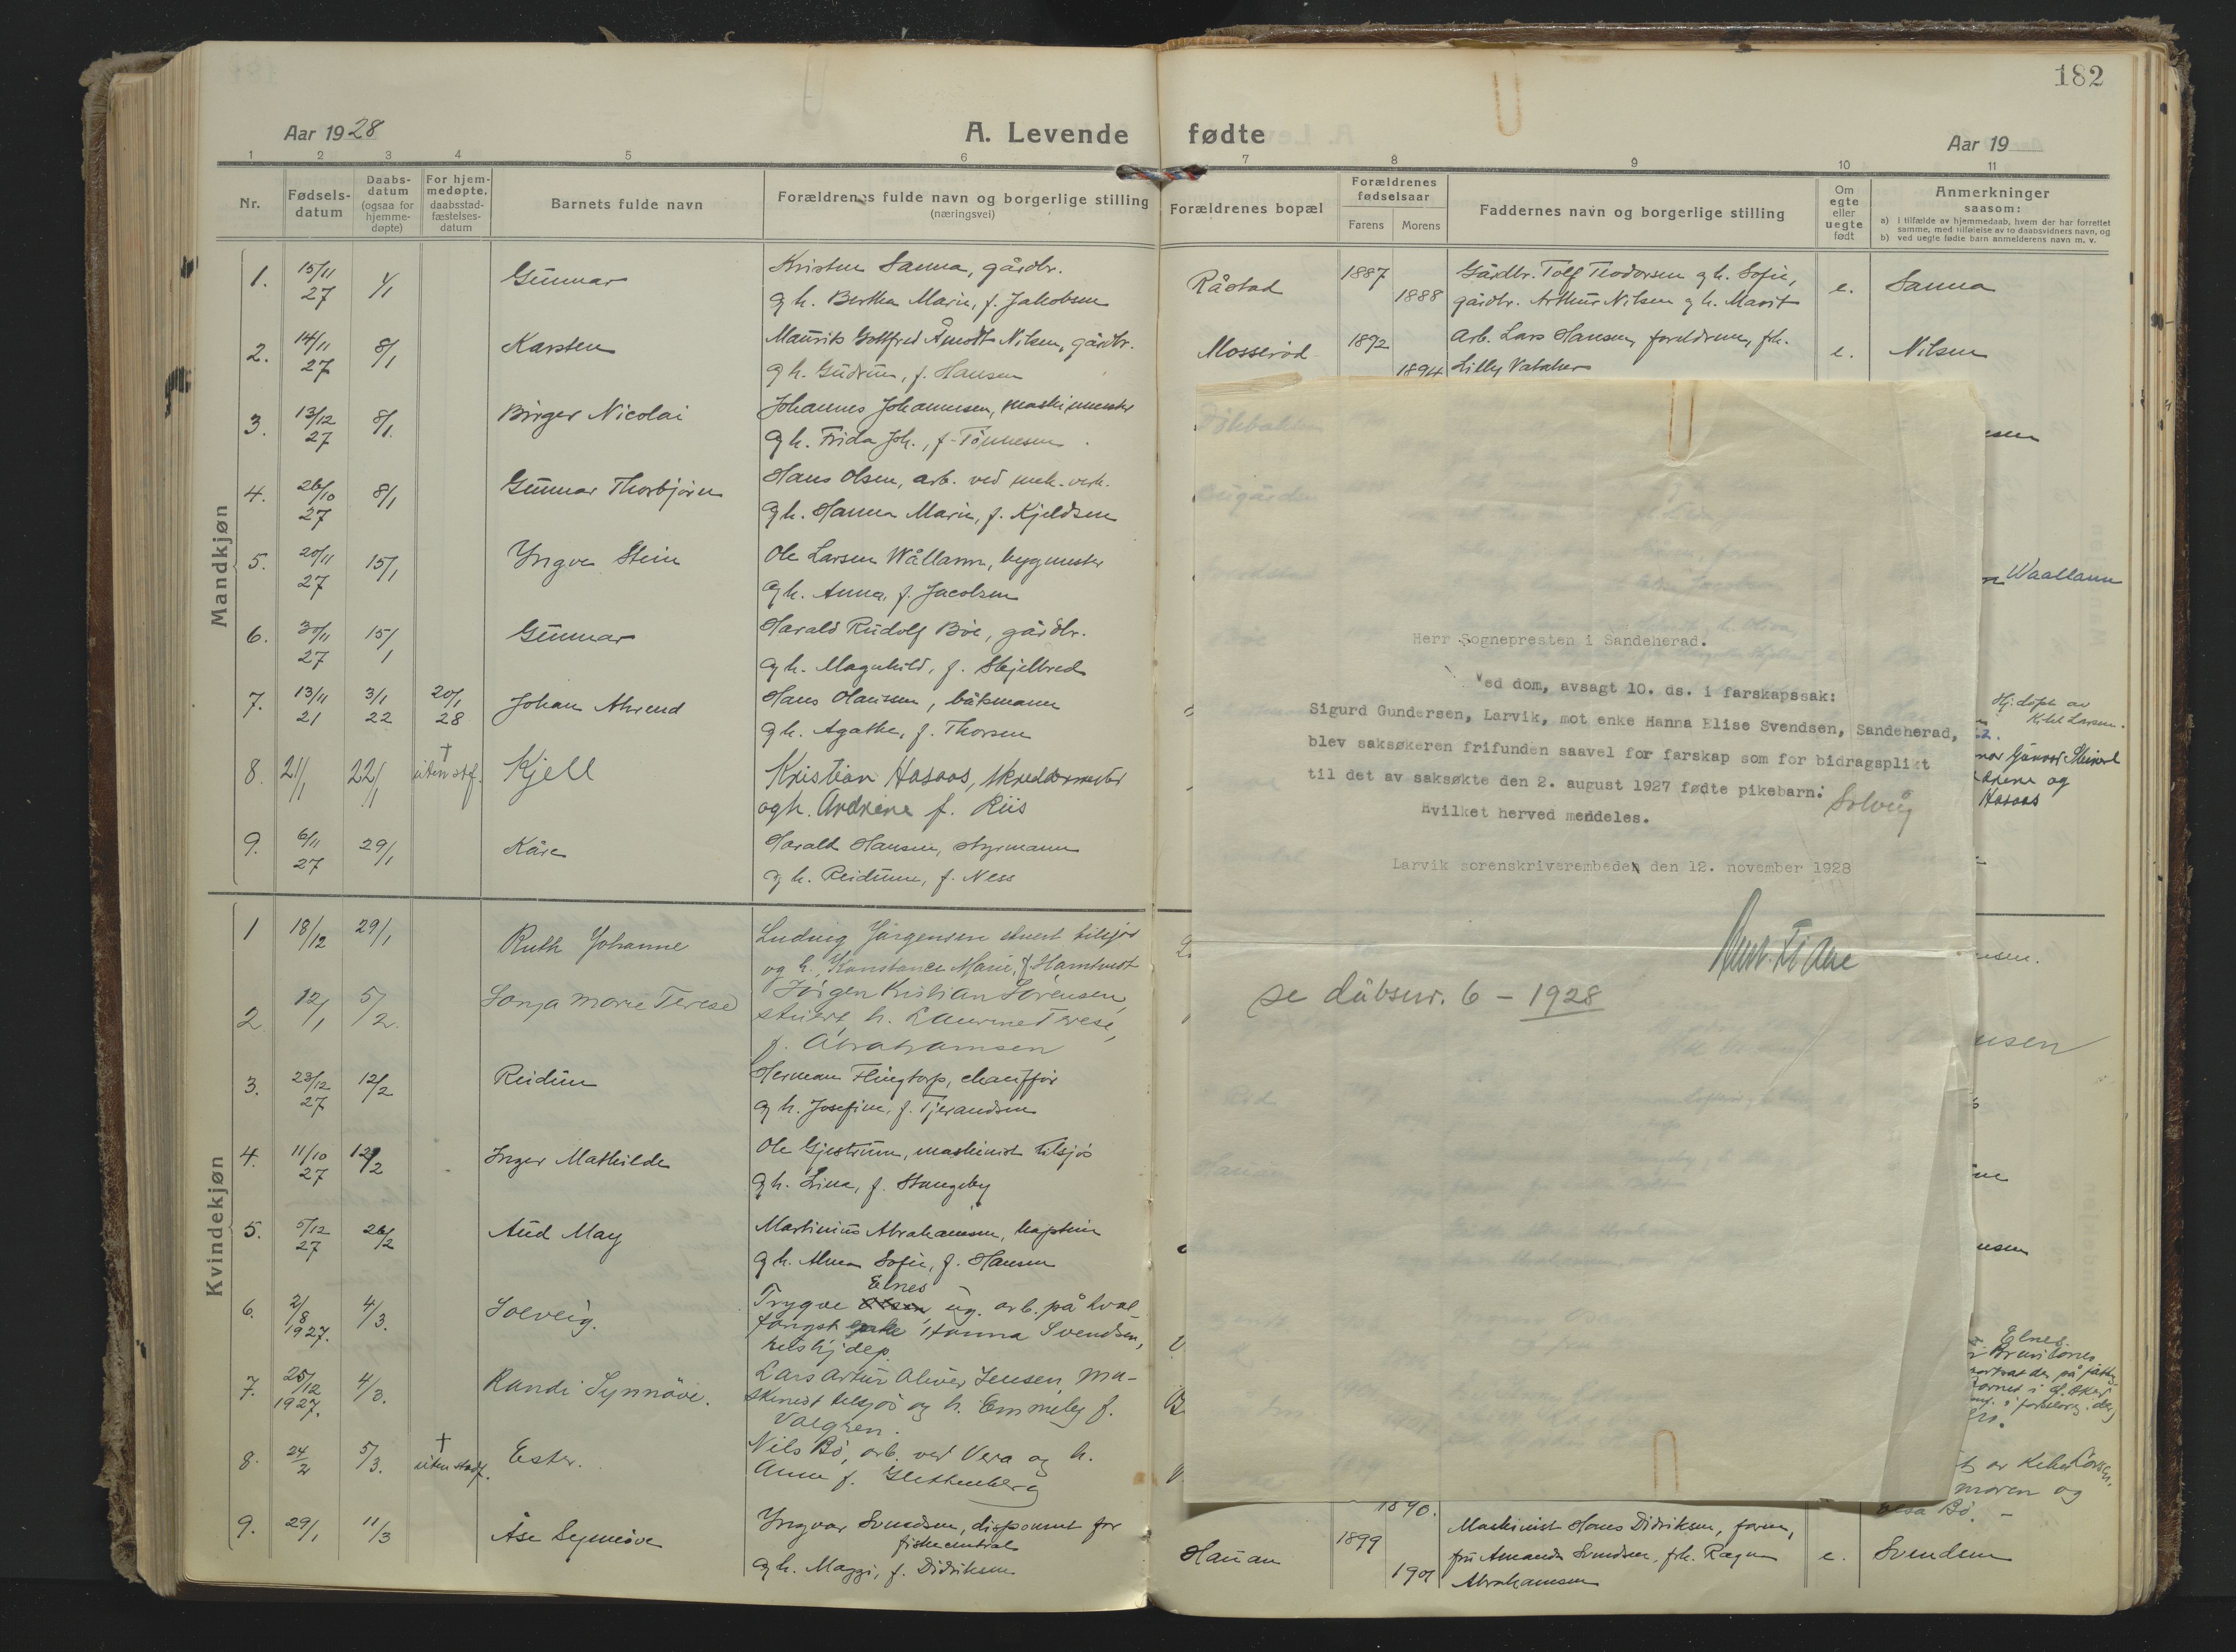 182
Aar 1928
A. Levende fødte
Aar 19
1 2 3 4 5 6 7 8 9 10 11
Nr.
Fødsels-
datum
Daabs-
datum
(ogsaa for
hjemme-
døpte)
For hjem-
medøpte,
daabsstad-
fæstelses-
datum
Barnets fulde navn
Forældrenes fulde navn og borgerlige stilling
(næringsvei)
Forældrenes bopæl
Forældrenes
fødselsaar
Farens Morens
Faddernes navn og borgerlige stilling
Om
egte
eller
uegte
født
Anmerkninger
saasom:
a) i tilfælde av hjemmedaab, hvem der har forrettet
samme, med tilføielse av to daabsvidners navn, og
b) ved uegte fødte barn anmelderens navn m. v.
Mandkjøn
1. 15/11 27 1/1 Gunnar Kristen Sanna, gårdbr.
og h. Bertha Marie, f. Jakobsen
Råstad 1887 1888
Gårdbr. Tolf Teodorsen og h. Sofie,
gårdbr. Arthur Nilsen og h. Marit
e. Sanna
2. 14/11 27 8/1 Karsten Mauritz Gottfred Åmodt Nilsen, gårdbr.
og h. Gudrun, f. Hansen
Mosserød 1892 1894
Arb. Lars Hansen, foreldrene, frk.
Lilly
e. Nilsen
3. 13/12 27 8/1 Birger Nicolai Johannes Johannesen, maskinmester
og h. Frida Joh., f. Tønnesen
4. 26/10 27 8/1 Gunnar Thorbjørn Hans Olsen, arb. ved mek. verk.
og h. Hanna Marie, f. Kjeldsen
5. 20/11 27 15/1 Yngve Stein Ole Larsen Wållann, byggmester
og h. Anna, f. Jacobsen
Waallann
6. 30/11 27 15/1 Gunnar Harald Rudolf Bøe, gårdbr.
og h. Magnhild, f. Skjelbred
7. 13/11 21 3/1 22 20/1 28 Johan Ahrend Hans Hanssen, båtsmann
og h. Agathe, f. Thorsen
Hj. døpt av
Kitel Larsen.
8. 21/1 22/1 † uten stf. Kjell Kristian Hasaas, skreddermester
og h. Andrine f. Riis
og
Hasaas
9. 6/11 27 29/1 Kåre Harald Hansen, styrmann
og h. Reidunn, f. Ness
Kvindekjøn
1 18/12 29/1 Ruth Johanne Ludvig Jørgensen stuert tilsjøs
og h. Konstance Marie, f. Hamtvedt
2. 12/1 5/2. Sonja Marie Terese Jørgen Kristian Sørensen,
stuert, h. Laurine Terese,
f. Abrahamsen
3. 23/12 27 12/2 Reidun Herman Flingtorp, chauffør
og h. Josefine, f. Tjerandsen
4. 11/10 27 12/2 Inger Mathilde Ole Gjestrum, maskinist tilsjøs
og h. Lina, f. Stangeby
5. 5/12 27 26/2 Aud May Martinius Abrahamsen, kaptein
og h. Alma Sofie, f. Hansen
6. 2/8 1927. 4/3. Solveig. Elnes
Trygve ug. arb. på hval
fangst enke Hanna Svendsen,
Elnes.
7. 25/12 1927. 4/3. Randi Synnøve. Lars Artur Oliver Jensen, ma-
skinist tilsjøs og h. Emmely f.
Valgren.
8. 24/2 5/3. † uten stadf. Ester. Nils Bø, arb. ved Vera og h.
Anna f. Glittenberg
av Kitel Larsen,
moren og
Elsa Bø.
9. 29/1 11/3 Åse Synnøve Yngvar Svendsen, disponent for
fiskecentral
og h. Maggi, f. Didriksen
Hauan 1899 1901
Maskinist Hans Didriksen, faren,
fru Amanda Svendsen, frk. Ragna
Abrahamsen
e. Svendsen
1890.
Herr Sognepresten i Sandeherad.
Ved dom, avsagt 10. ds. i farskapssak:
Sigurd Gundersen, Larvik, mot enke Hanna Elise Svendsen, Sandeherad,
blev saksøkeren frifunden saavel for farskap som for bidragsplikt
til det av saksøkte den 2. august 1927 fødte pikebarn: Solveig
Hvilket herved meddeles.
Larvik sorenskriverembede den 12. november 1928
se dåbsnr. 6 - 1928